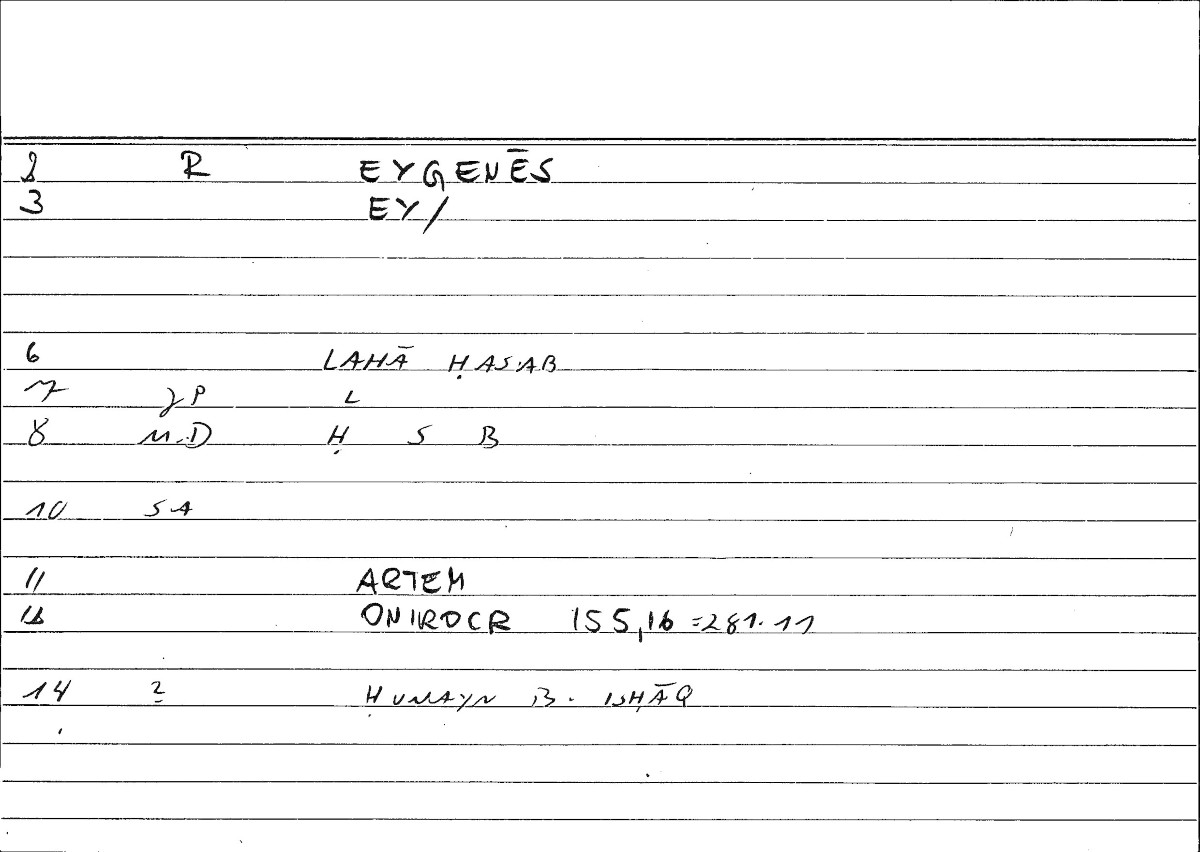 2 R EYGENĒS
3 EY/
6 LAHĀ ḤASAB
7 JP L
8 M.D Ḥ S B
10 SA
11 ARTEM
12 ONIROCR 155,16 =281.11
14 2 ḤUNAYN B. ISḤĀQ